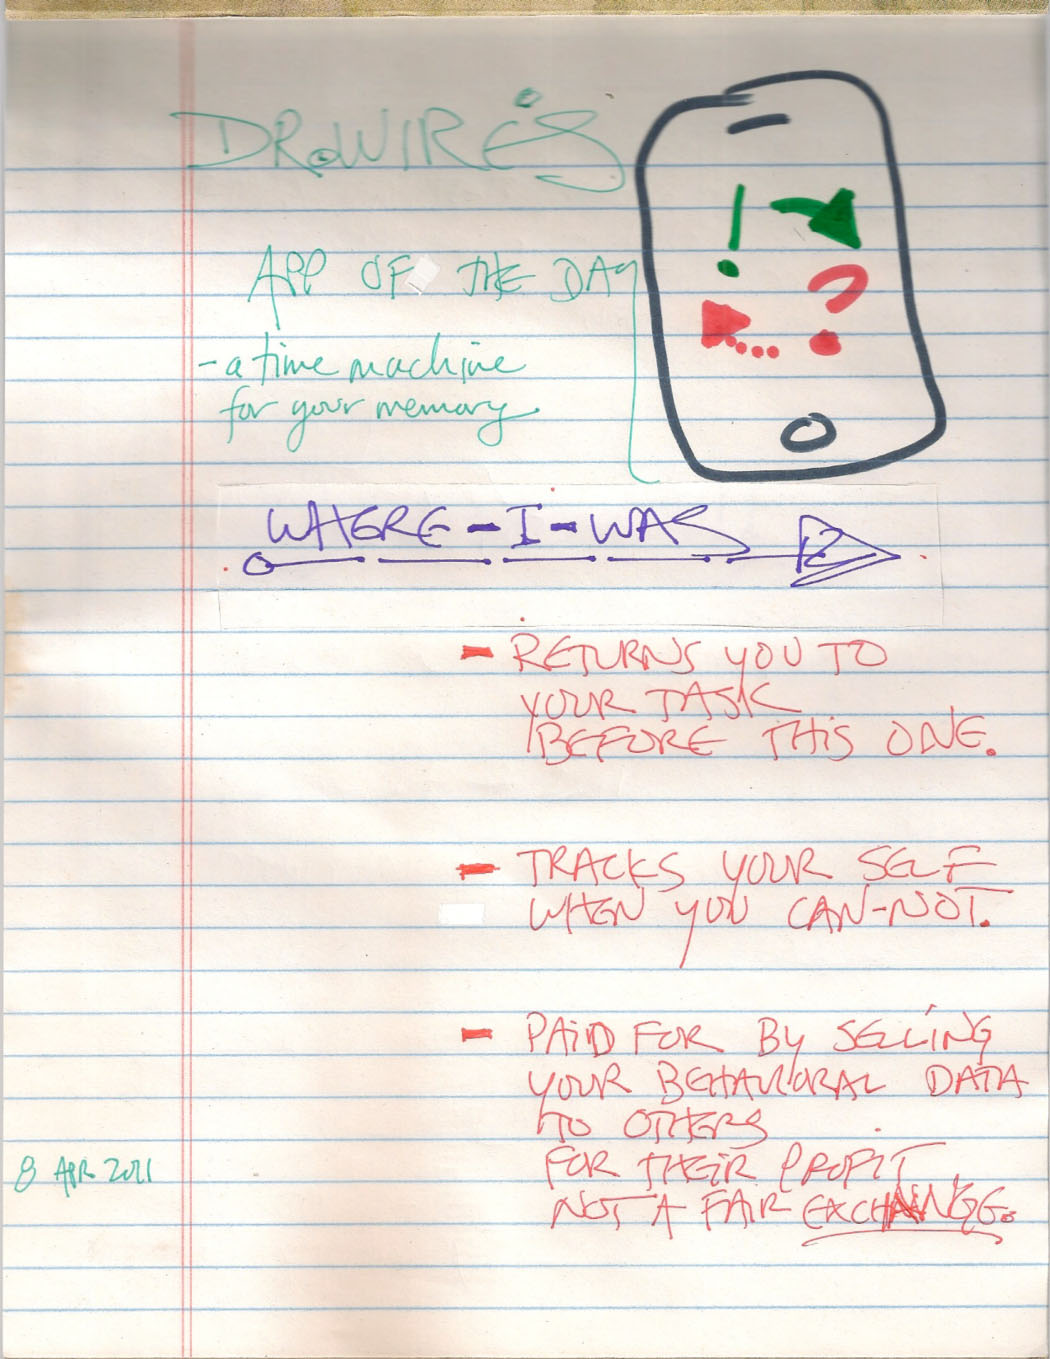 DR.WIRE'S
APP OF THE DAY
- a time machine
for your memory.
WHERE-I-WAS
- RETURNS YOU TO
YOUR TASK
BEFORE THIS ONE.
- TRACKS YOUR SELF
WHEN YOU CAN-NOT.
- PAID FOR BY SELLING
YOUR BEHAVIORAL DATA
TO OTHERS
FOR THEIR PROFIT
NOT A FAIR EXCHANGE.
8 APR 2011
! ?